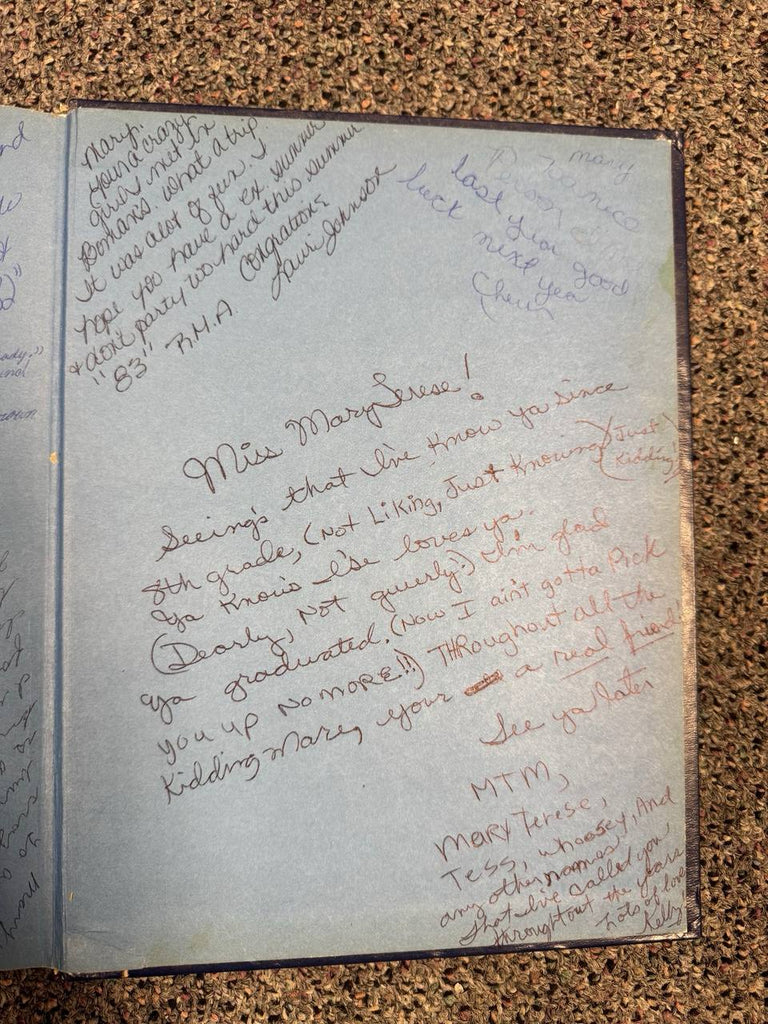 Mary,
Your a crazy
girl, met in
Roman's. what a trip
It was alot of fun. I
hope you have a ex. summer
* dont party too hard this summer
"83" R.M.A. Congrations
Lauri Johnson
mary
person
last year good
luck next year
Cheri
Miss Mary Terese!
Seeing's that I've know ya since
8th grade, (Not Liking, Just Knowing) (Just Kidding!)
Ya know's I'se loves ya.
(Dearly, Not queerly!) I'm glad
ya graduated. (Now I ain't gotta Pick
you up NO MORE!!) THRoughout all the
Kidding Mare, your a real friend!
See ya later
MTM,
MARY Terese,
Tess, whoosey, And
any other names
that I've called you
throughtout the years
Lots of love
Kelly